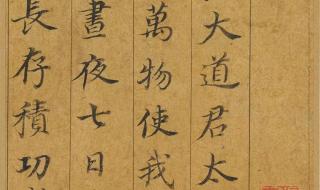 大道君太
萬物使我
晝夜七日
長存積功